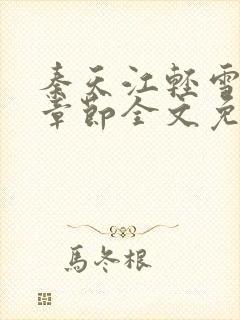 秦天江轻雪
章节全文免
馬冬根